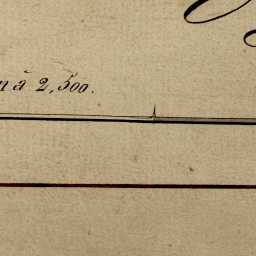 n à 2,500.